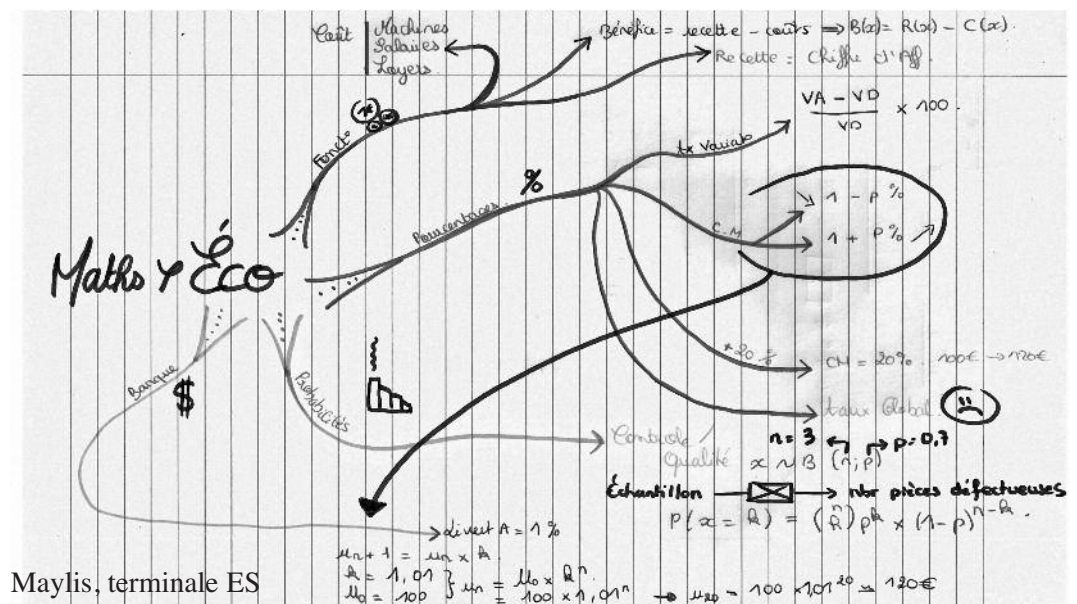 Coût
Machines
Salaires
Loyers
Bénéfice = recette - coûts ⇒ B(x) = R(x) - C(x).
Recette = Chiffre d'Aff.
Fonct°
VA - VD
VD
× 100.
tx Variat°
%
Pourcentages
C.M
↘ 1 - p%
1 + p% ↗
Maths & Éco
+20%
CM = 20% 100€ → 120€
taux Global
Banque
$
Probabilités
Contrôle
Qualité
n = 3
p = 0,7
x ~ B (n; p)
Échantillon → nbr pièces défectueuses
P(x = k) = (n k) p^k × (1-p)^(n-k).
Livret A = 1%
u_n+1 = u_n × k
k = 1,01
u_0 = 100
u_n = u_0 × k^n
= 100 × 1,01^n
→ u_20 = 100 × 1,01^20 ≃ 120€
Maylis, terminale ES